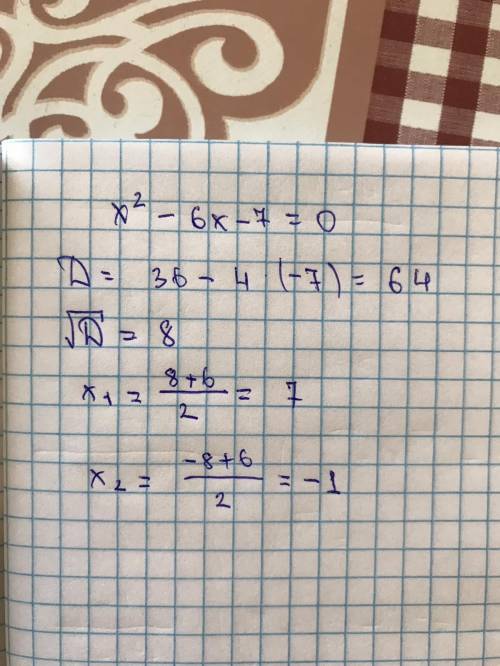 x² - 6x - 7 = 0
D = 36 - 4 · (-7) = 64
√D = 8
x₁ = (8+6)/2 = 7
x₂ = (-8+6)/2 = -1